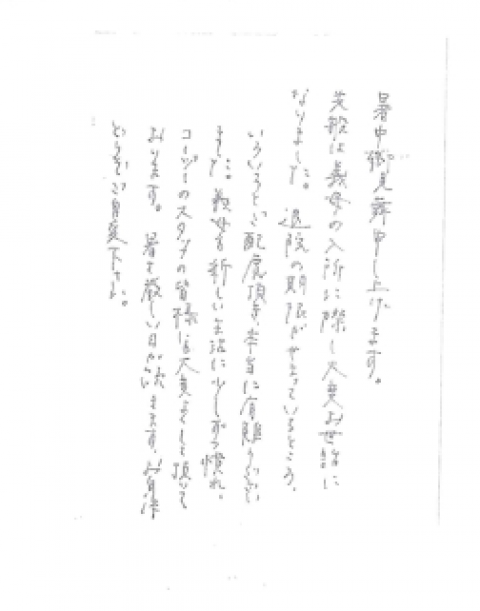 暑中御見舞申し上げます。
先般は義母の入所に際し大変お世話に
なりました。退院の期限がせまっているところ、
いろいろとご配慮頂き、本当に有難うござい
ました。義母も新しい生活に少しずつ慣れ、
コージーのスタッフの皆様にも大変よくして頂いて
おります。暑さ厳しい日が続きます。お身体
どうぞご自愛下さい。